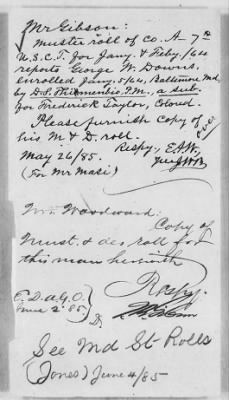 Mr Gibson:
Muster roll of co. A. 7th
U.S.C.T. for Jany. & Feby./64
reports George W. Downs,
enrolled Jany. 5/64, Baltimore Md,
by D.S. P.M., a sub.
for Frederick Taylor, Colored.
Please furnish copy of
his M & D. roll.
Respy, E.A.W.
May 26/85.
(For Mr Masi)
Mr. Woodward:
Copy of
Must. & des roll for
this man herewith
Respy.
E.D.A.G.O.
June 2 '85
See Md St Rolls
(Jones) June 4/85